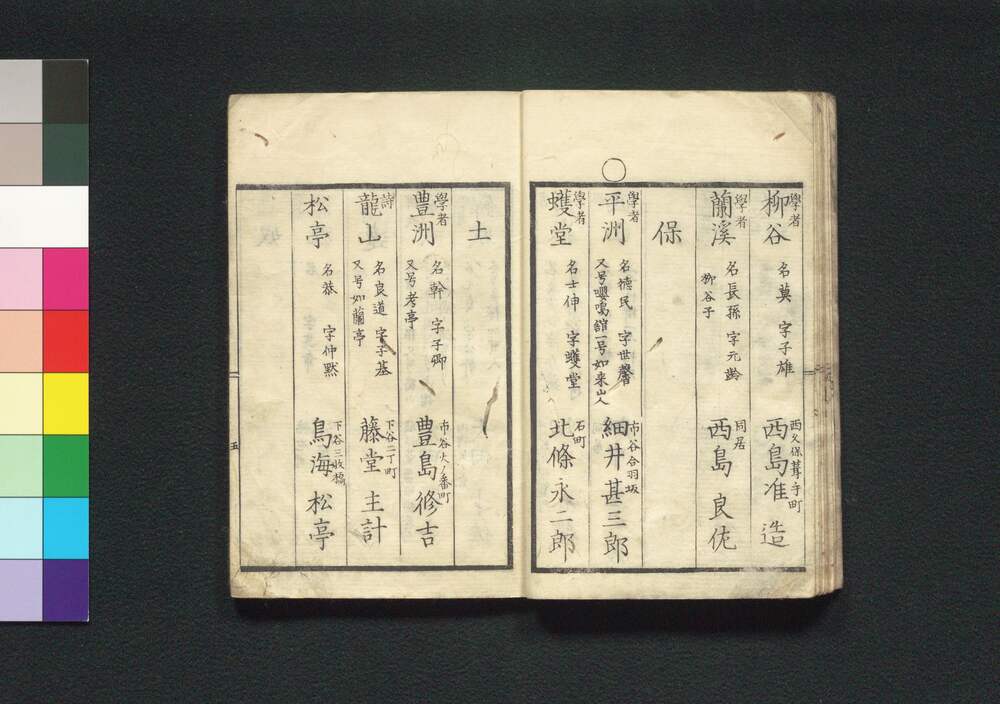 學者
柳谷 名莫 字子雄
西久保葺手町
西島准造
學者
蘭溪 名長孫 字元齡
柳谷子
同居
西島良佐
保
學者
平洲 名德民 字世馨
又号嚶鳴舘一号如来山人
市谷合羽坂
細井甚三郎
學者
蠖堂 名士伸 字蠖堂
石町
北條永二郎
土
學者
豊洲 名幹 字子卿
又号考亭
市谷火ノ番町
豊島修吉
詩
龍山 名良道 字子基
又号如蘭亭
下谷二丁町
藤堂主計
松亭 名恭 字仲默
下谷三枚橋
鳥海松亭
五